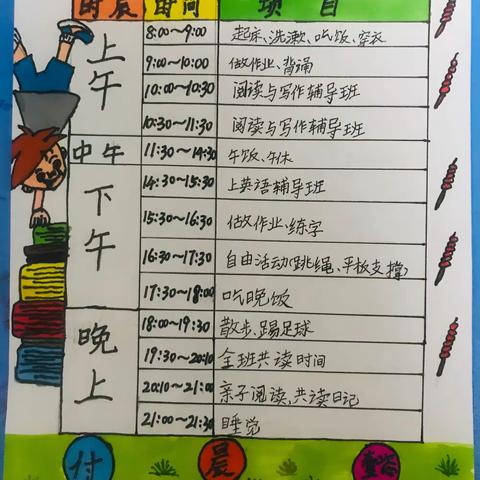 时辰 时间 项目
上午
8:00~9:00 起床、洗漱、吃饭、穿衣
9:00~10:00 做作业、背诵
10:00~10:30 阅读与写作辅导班
10:30~11:30 阅读与写作辅导班
中午 11:30~14:30 午饭、午休
下午
14:30~15:30 上英语辅导班
15:30~16:30 做作业、练字
16:30~17:30 自由活动(跳绳、平板支撑)
17:30~18:00 吃晚饭
晚上
18:00~19:30 散步、踢足球
19:30~20:10 全班共读时间
20:10~21:00 亲子阅读、共读日记
21:00~21:30 睡觉
付 晨